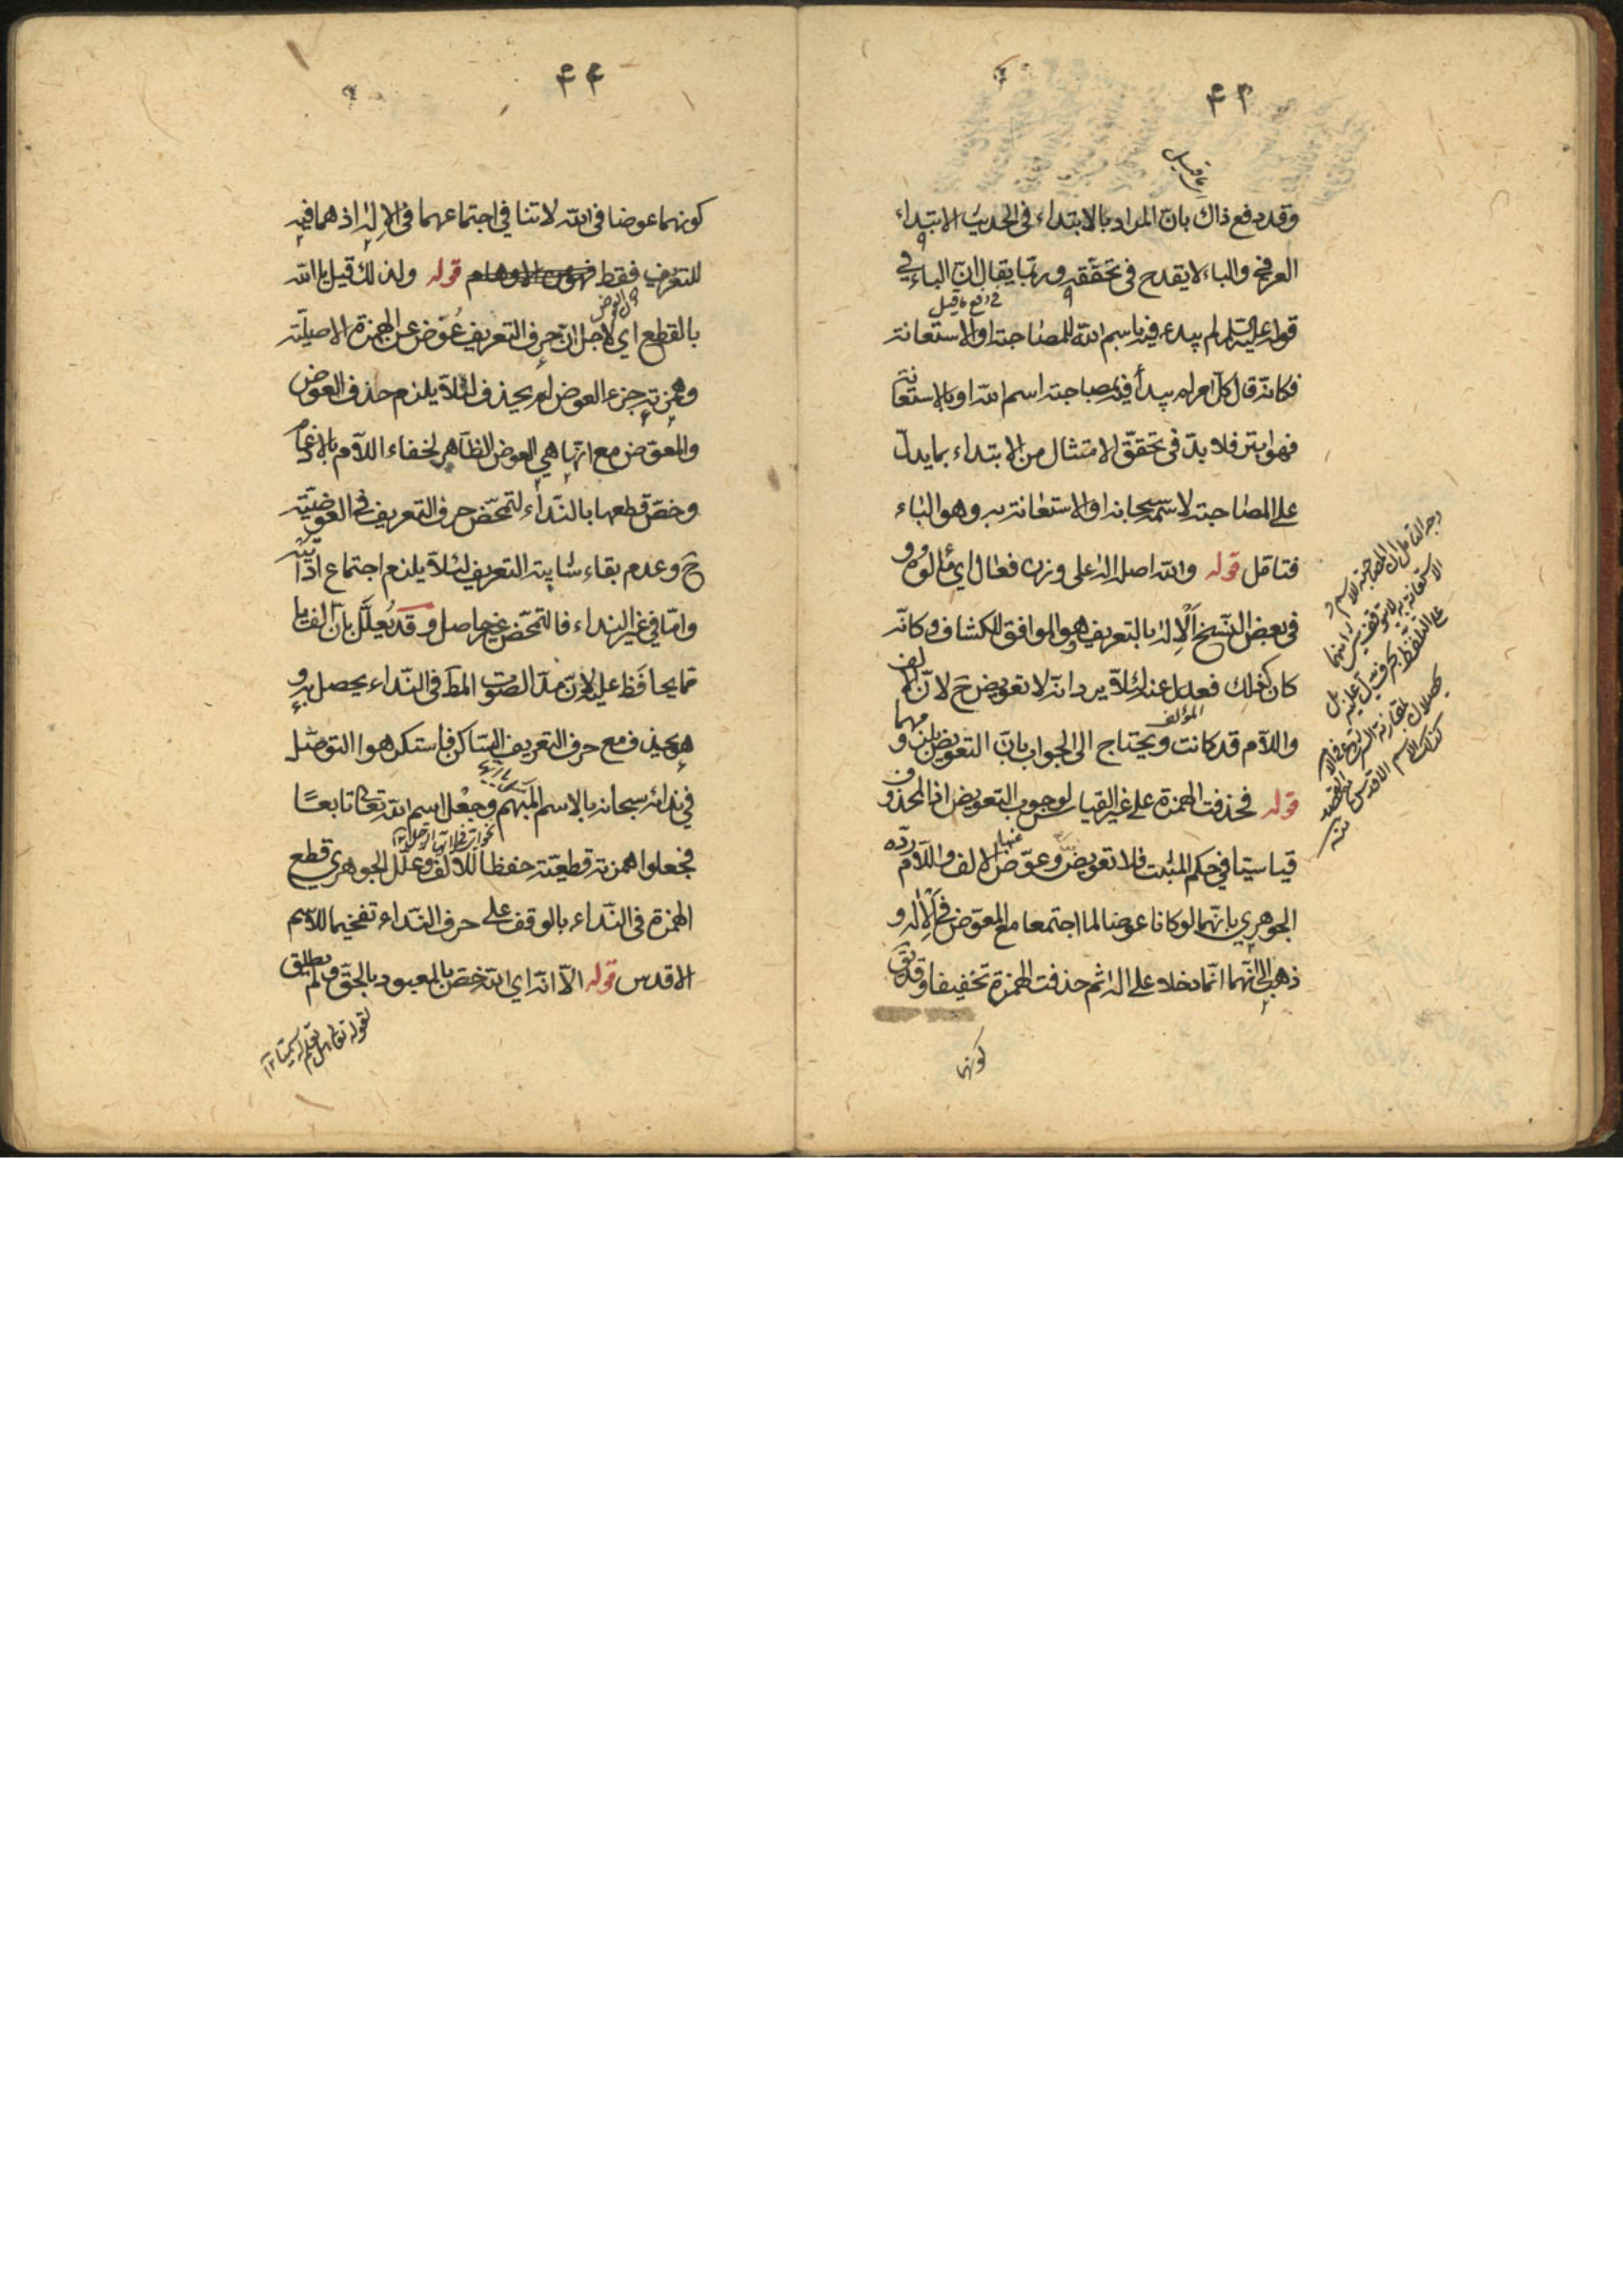 ۴۳
ما قيل
وقد دفع ذاك بانّ المراد بالابتداء فى الحديث الابتداء
العرفي والباء لا يقدح فى تحقّقه وربّما يقال انّ الباء في
في دفع ما قيل
قوله عليه السّلم لم يبدء فيه باسم الله للمصاحبة او الاستعانة
فكانّه قال كلّ امر لم يبدأ فيه بمصاحبة اسم الله او بالاستعانة
فهو ابتر فلا بدّ فى تحقّق الامتثال من الابتداء بما يدلّ
على المصاحبة لاسمه سبحانه او الاستعانة به وهو الباء
فتامّل قوله والله اصله اله على وزن فعال اي مألوه و
فى بعض النّسخ اَلْاِله بالتعريف وهو الموافق للكشاف وكانّه
كان كذلك فعدل عنه لئلاّ يرد انّه لا تعويض ح لانّ الالف
واللاّم قد كانت ويحتاج الى الجواب بانّ التعويض بلزومهما و
المؤلف
قوله فحذفت الهمزة على غير القياس لوجوب التعويض اذ المحذوف
قياسيّا في حكم المثبت فلا تعويض وعوّض عنها الالف واللاّم ردّه
الجوهري بانّهما لو كانا عوضا لما اجتمعا مع المعوّض فى اَلْاِله و
ذهب الى انّهما انّما دخلا على اله ثم حذفت الهمزة تخفيفا وقد يق
كونهما
وجه التامل ان المصاحبة لاسم و
الاستعانة به لا يتوقف
على التلفظ بحرف يدل عليه بل
يحصلان بمقارنة الشروع في الامر
كذلك الاسم الاقدس منه
۴۴
كونهما عوضا فى الله لا تنافي اجتماعهما فى الاله اذ هما فيه
للتعريف فقط قوله ولذلك قيل يا الله
بالقطع اي لاجل انّ حرف التعريف عُوّض عن الهمزة الاصليّة
وهمزته جزء العوض لم يحذف لئلاّ يلزم حذف العوض
والمعوّض مع انّها هي العوض الظّاهر لخفاء اللاّم بالادغام
وخصّ قطعها بالنّداء لتمحّض حرف التعريف فى العوضيّة
ح وعدم بقاء شايبة التعريف لئلاّ يلزم اجتماع اداتيه
وامّا في غير النداء فالتمحّض غير حاصل وقد يُعلَّل بانّ الف يا
ممّا يحافَظ عليه لانّ مدّ الصّوت المط فى النّداء يحصل به و
هو يحذف مع حرف التعريف السّاكن فاستكرهوا التوصّل
في ندائه سبحانه بالاسم المبهم وجعْل اسم الله تعالى تابعًا
فجعلوا همزته قطعيّة حفظا للالف وعلّل الجوهري قطع
الهمزة فى النّداء بالوقف على حرف النّداء تفخيما للاسم
الاقدس قوله الاّ انّه اي الله خصّ بالمعبود بالحقّ ولم يطلق
لقوله تعالى هل تعلم له سميّا ١٢